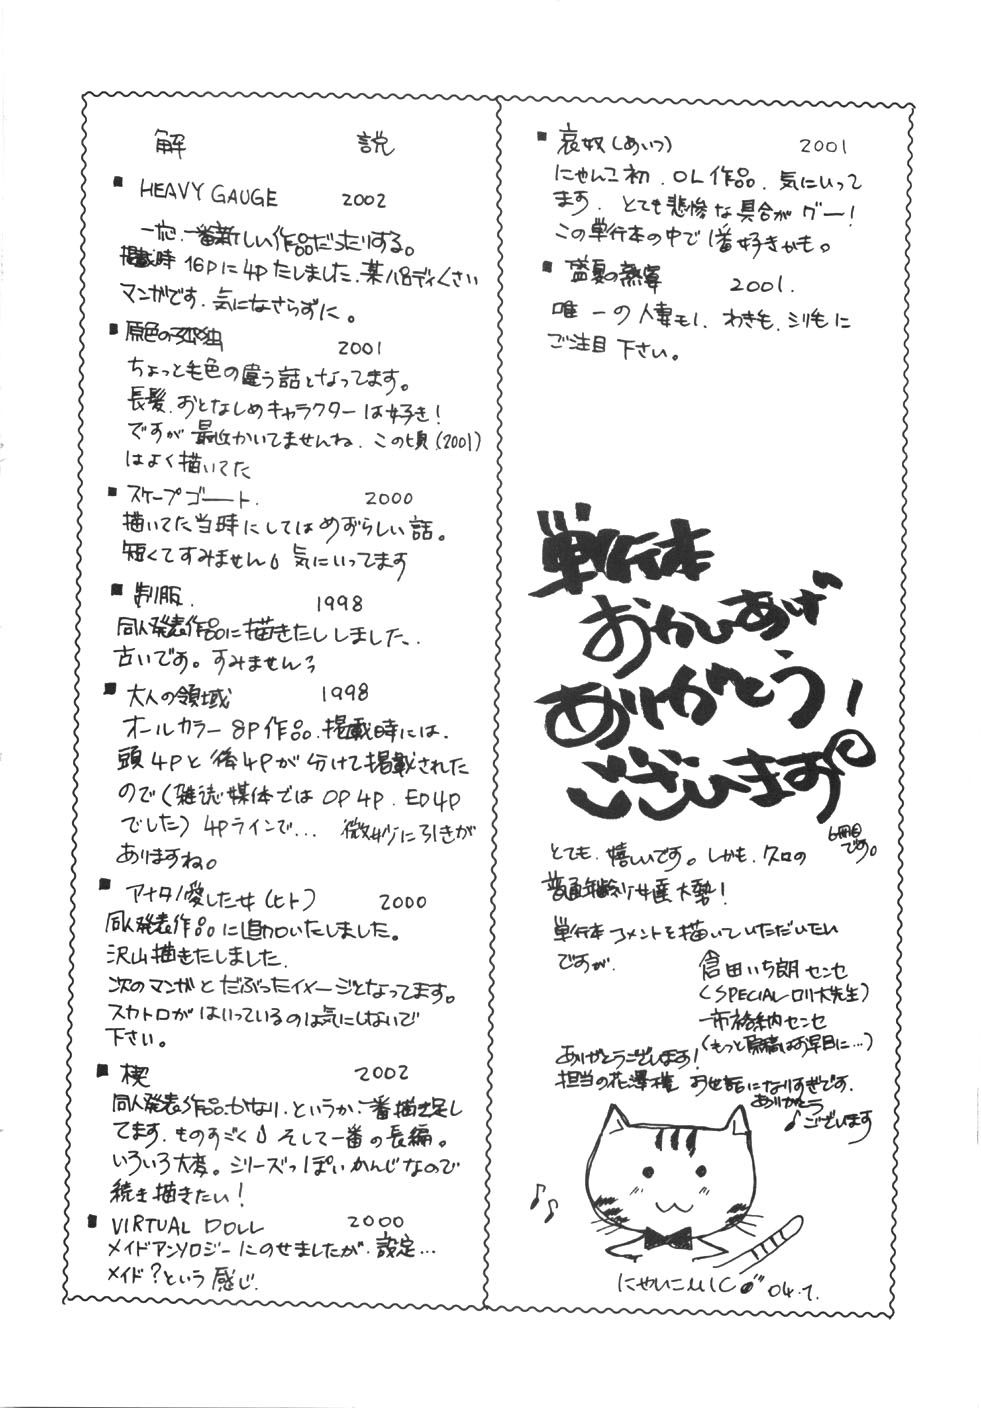 解説
■ HEAVY GAUGE 2002
一応、一番新しい作品だったりする。
掲載時16Pに4Pたしました、某パロディくさい
マンガです、気になさらずに。
■ 原色の孤独 2001
ちょっと毛色の違う話となってます。
長髪、おとなしめキャラクターは好き!
ですが最近かいてませんね、この頃(2001)
はよく描いてた
■ スケープゴート. 2000
描いてた当時にしてはめずらしい話。
短くてすみません 気にいってます
■ 制服. 1998
同人発表作品に描きたししました.
古いです。すみません
■ 大人の領域 1998
オールカラー8P作品、掲載時には、
頭4Pと後4Pが分けて掲載された
ので(雑誌媒体ではOP4P、ED4P
でした)4Pラインで... 微妙に引きが
ありますね。
■ アナタノ愛した女(ヒト) 2000
同人発表作品に追加いたしました。
沢山描きたしました.
次のマンガとだぶったイメージとなってます。
スカトロがはいっているのは気にしないで
下さい。
■ 楔 2002
同人発表作品、かなり、というか、一番描き足し
てます、ものすごく そして一番の長編。
いろいろ大変。シリーズっぽいかんじなので
続き描きたい!
■ VIRTUAL DOLL 2000
メイドアンソロジーにのせましたが、設定...
メイド?という感じ.
■ 哀奴(あいつ) 2001
にゃんこ初、OL作品、気にいって
ます、とても悲惨な具合がグー!
この単行本の中で1番好きかも。
■ 盛夏の熱宴 2001.
唯一の人妻モノ、わき毛、シリ毛に
ご注目下さい。
単行本
おかいあげ
ありがとう!
ございます
6冊目
です。
とても、嬉しいです。しかも、クロの
普通年齢少女産大勢!
単行本コメントを描いていただいたい
ですが、
倉田いち朗センセ
(SPECIALロリ大先生)
市格納センセ
(もっと原稿はお早目に...)
ありがとうございます!
担当の花澤様 お世話になりすぎです.
ありがとう
♪ございます
にゃんこMIC 04.7.